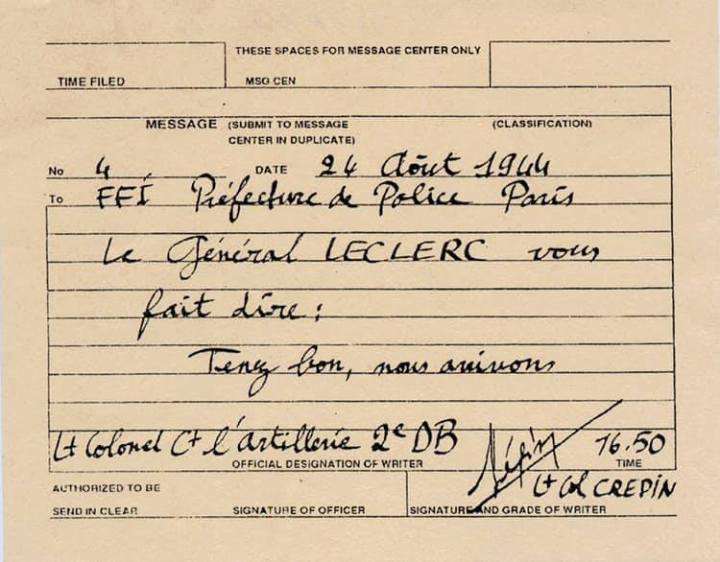 THESE SPACES FOR MESSAGE CENTER ONLY
TIME FILED MSG CEN
MESSAGE (SUBMIT TO MESSAGE CENTER IN DUPLICATE) (CLASSIFICATION)
No 4 DATE 24 Août 1944
To FFI Préfecture de Police Paris
Le Général LECLERC vous
fait dire :
Tenez bon, nous arrivons
Lt Colonel Ct l'artillerie 2e DB 16.50
OFFICIAL DESIGNATION OF WRITER TIME
Lt Col CREPIN
AUTHORIZED TO BE
SEND IN CLEAR SIGNATURE OF OFFICER SIGNATURE AND GRADE OF WRITER